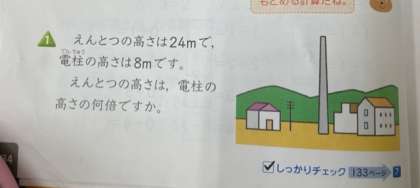 もとめる計算だね。
1 えんとつの高さは24mで,
電柱の高さは8mです。
えんとつの高さは, 電柱の
高さの何倍ですか。
しっかりチェック 133ページ 7